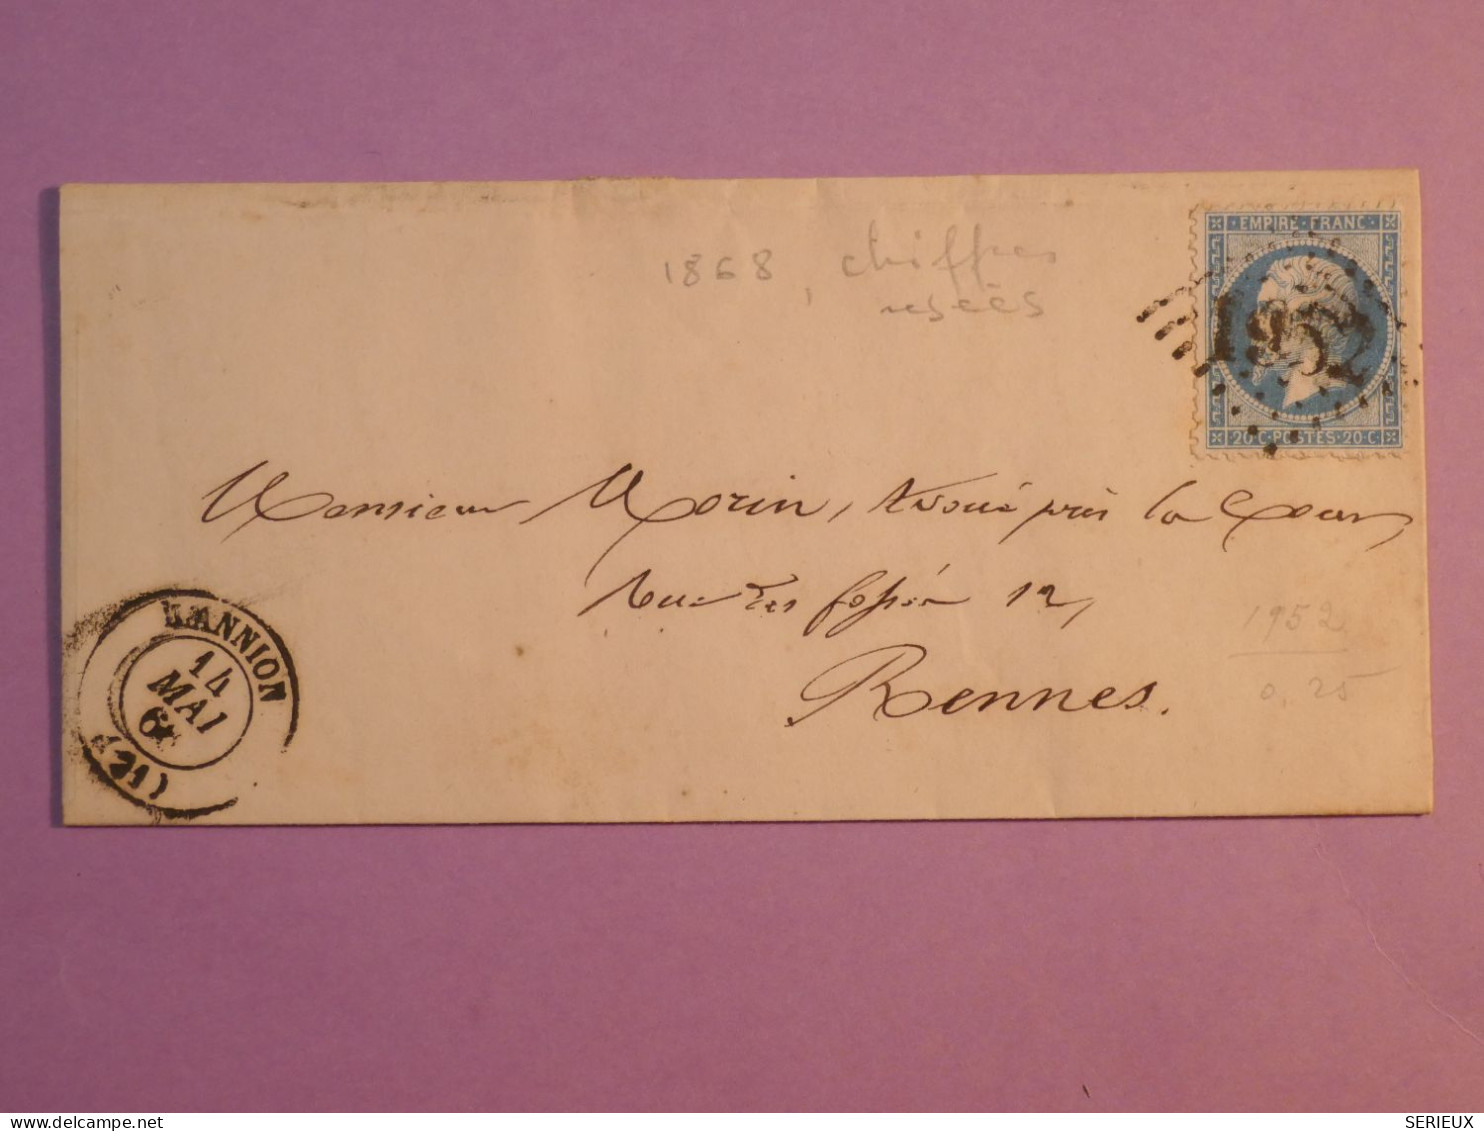 1868, chiffres
usées
EMPIRE FRANC
1952
20 C POSTES 20 C
Monsieur Morin, Avoué près la Cour,
Rue des fossés 12,
Rennes.
1952
0,25
LANNION
14
MAI
68
(21)
SERIEUX